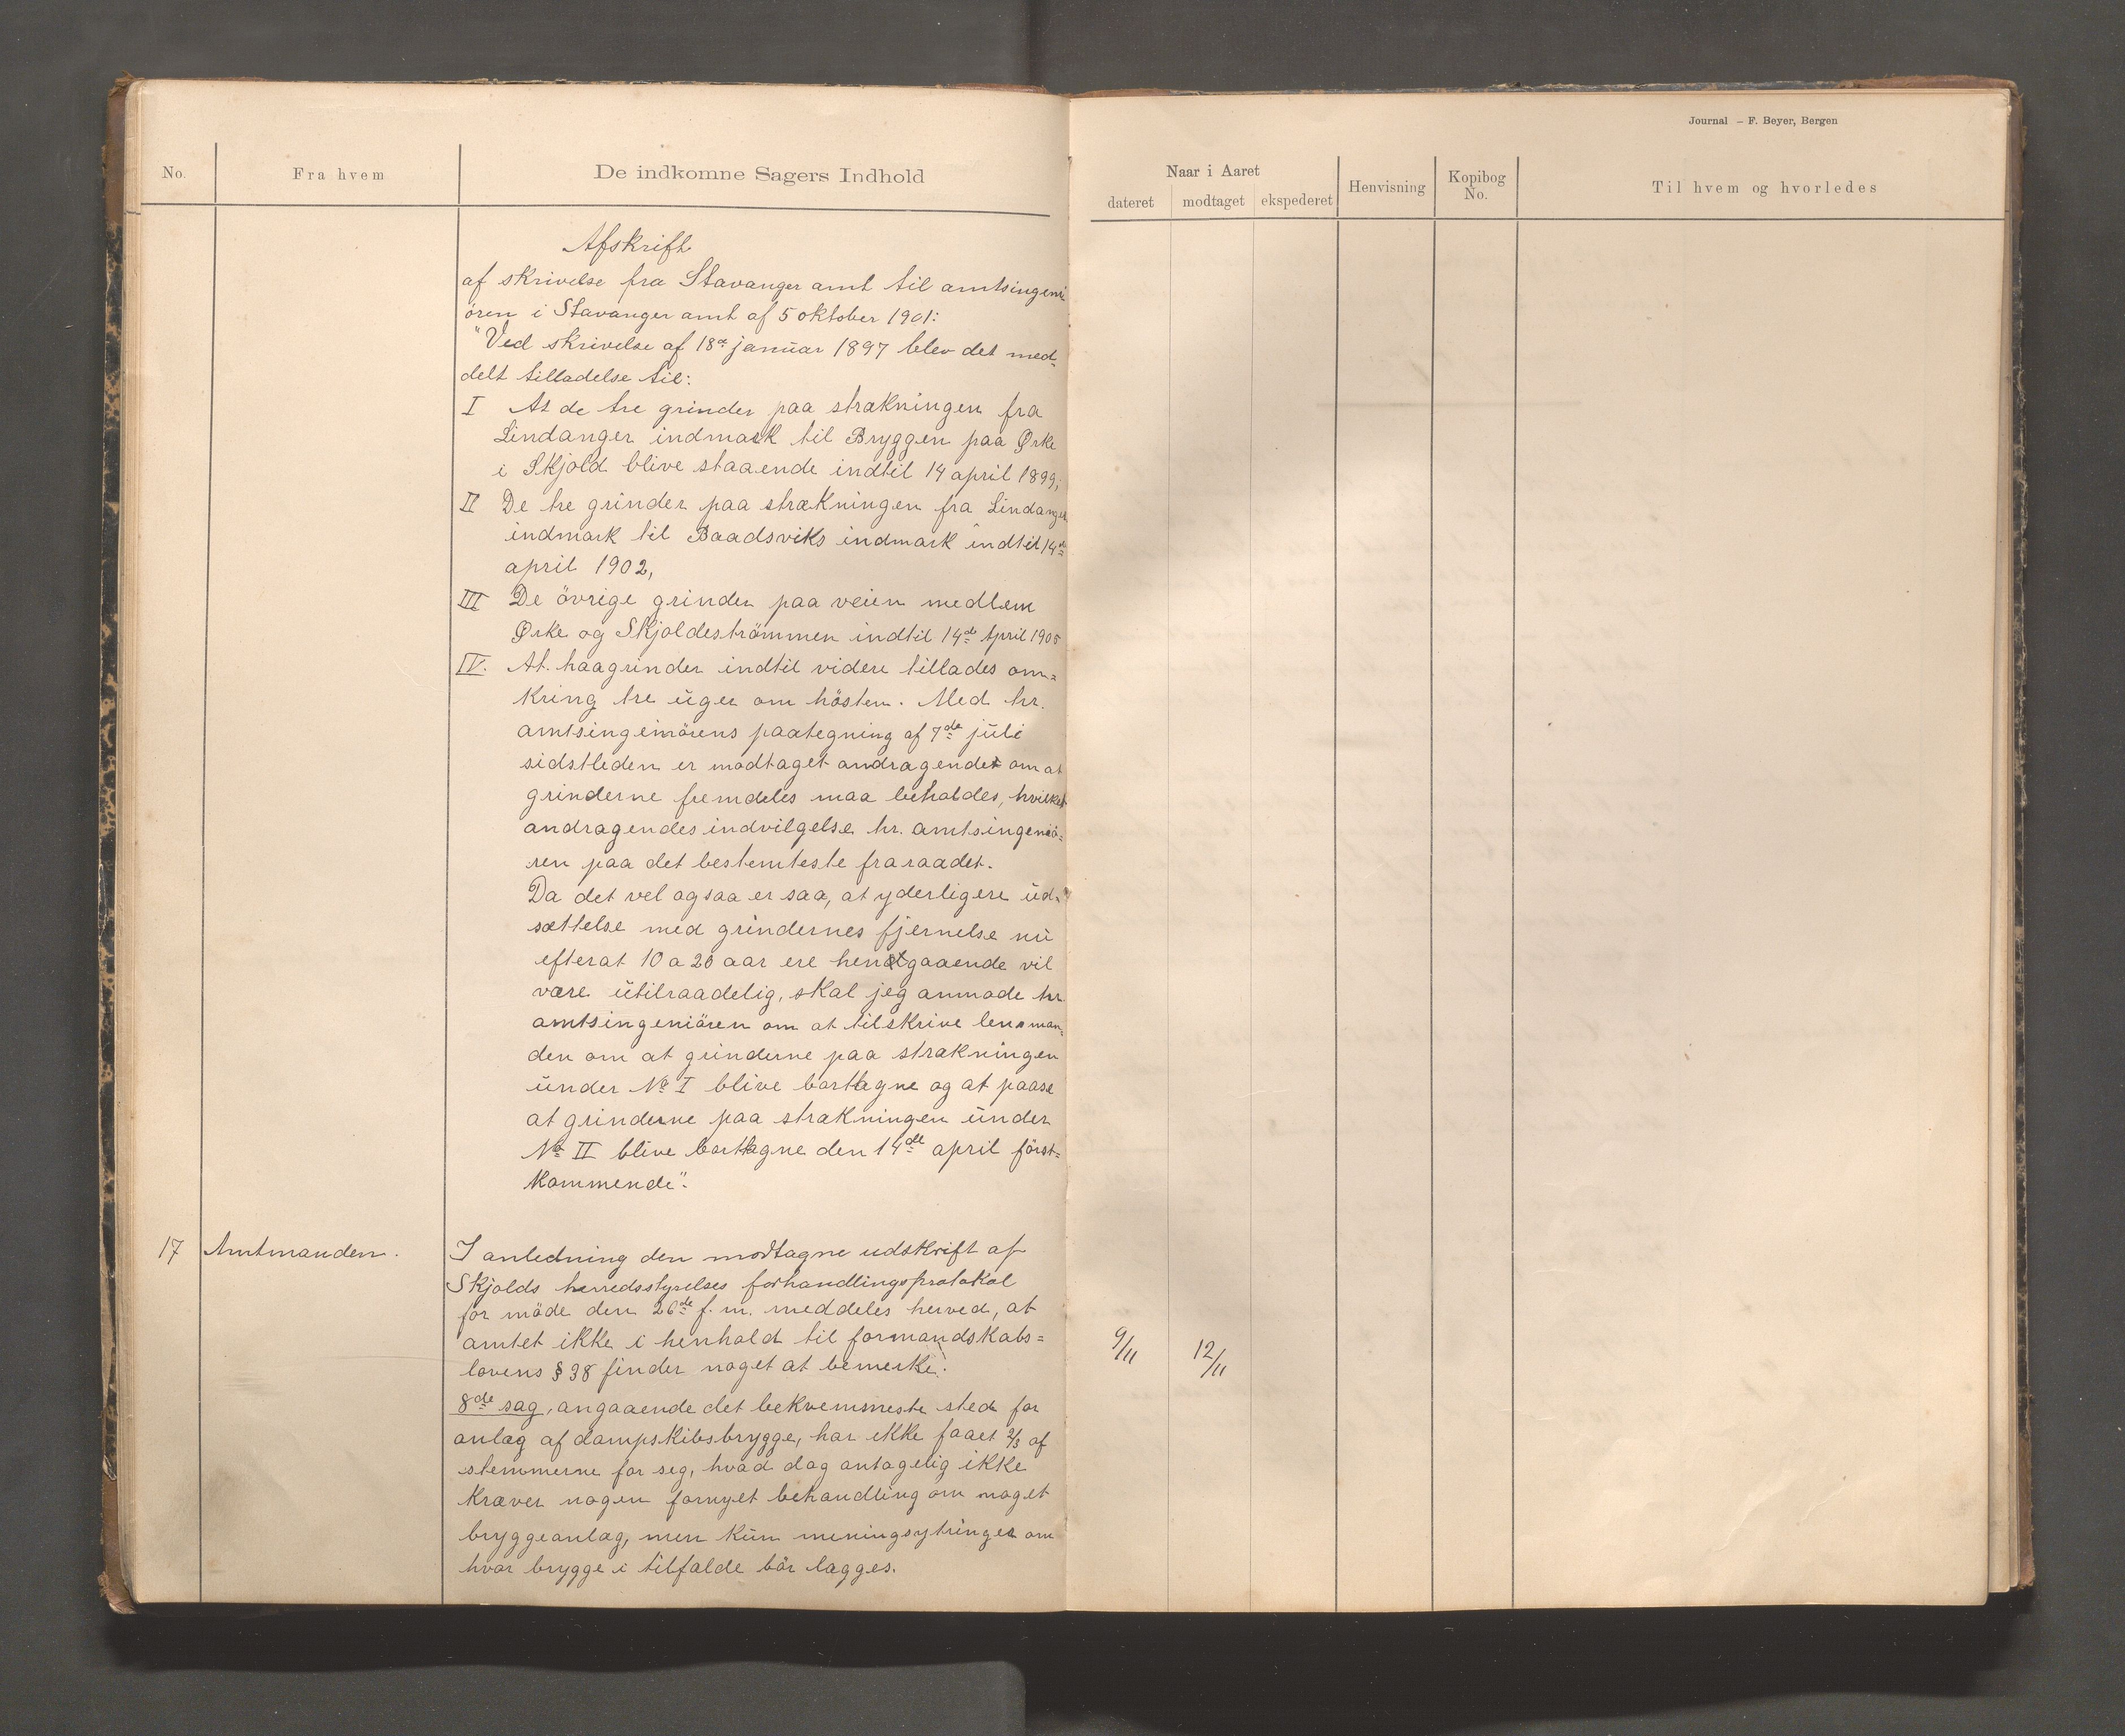 Journal – F. Beyer, Bergen
No.
Fra hvem
De indkomne Sagers Indhold
Naar i Aaret
dateret
modtaget
ekspederet
Henvisning
Kopibog
No.
Til hvem og hvorledes
Afskrift
af skrivelse fra Stavanger amt til amtsingeni
ören i Stavanger amt af 5 oktober 1901:
"Ved skrivelse af 18de januar 1897 blev det med-
delt tilladelse til:
I At de tre grinder paa strækningen fra
Lindanger indmark til Bryggen paa Ørke
i Skjold blive staaende indtil 14 april 1899;
II De tre grinder paa strækningen fra Lindanger
indmark til Baadsviks indmark indtil 14de
april 1902,
III De övrige grinder paa veien mellem
Ørke og Skjoldeströmmen indtil 14de April 1905
IV. At haagrinder indtil videre tillades om=
kring tre uger om hösten. Med hr.
amtsingeniörens paategning af 7de juli
sidstleden er modtaget andragendet om at
grinderne fremdeles maa beholdes, hvilket
andragendes indvilgelse hr. amtsingeniö=
ren paa det bestemteste fraraadet.
Da det vel ogsaa er saa, at yderligere ud=
sættelse med grindernes fjernelse nu
efterat 10 a 20 aar ere hengaaende vil
være utilraadelig, skal jeg anmode hr
amtsingeniören om at tilskrive lensman=
den om at grinderne paa strækningen
under No I blive borttagne og at paase
at grinderne paa strækningen under
No II blive borttagne den 14de april först=
kommende".
17 Amtmanden.
I anledning den modtagne udskrift af
Skjolds herredsstyrelses forhandlingsprotokol
for möde den 26de f. m. meddeles herved, at
amtet ikke i henhold til formandskabs=
lovens § 38 finder noget at bemerke.
9/11
12/11
8de sag, angaaende det bekvemmeste sted for
anlæg af dampskibsbrygge, har ikke faaet 2/3 af
stemmerne for seg, hvad dog antagelig ikke
kræver nogen fornyet behandling om noget
bryggeanlæg, men kun meningsytringer om
hvor brygge i tilfælde bör lægges.